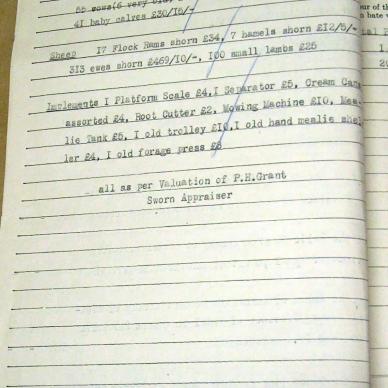 65 cows(6 very old,
41 baby calves £30/15/-
Sheep 17 Flock Rams shorn £34, 7 hamels shorn £12/5/-
313 ewes shorn £469/10/-, 100 small lambs £25
Implements 1 Platform Scale £4,1 Separator £5, Cream Cans
assorted £4, Root Cutter £2, Mowing Machine £10, Mea-
lie Tank £5, 1 old trolley £10,1 old hand mealie shel
ler £4, 1 old forage press £8
all as per Valuation of P.H.Grant
Sworn Appraiser
our of th